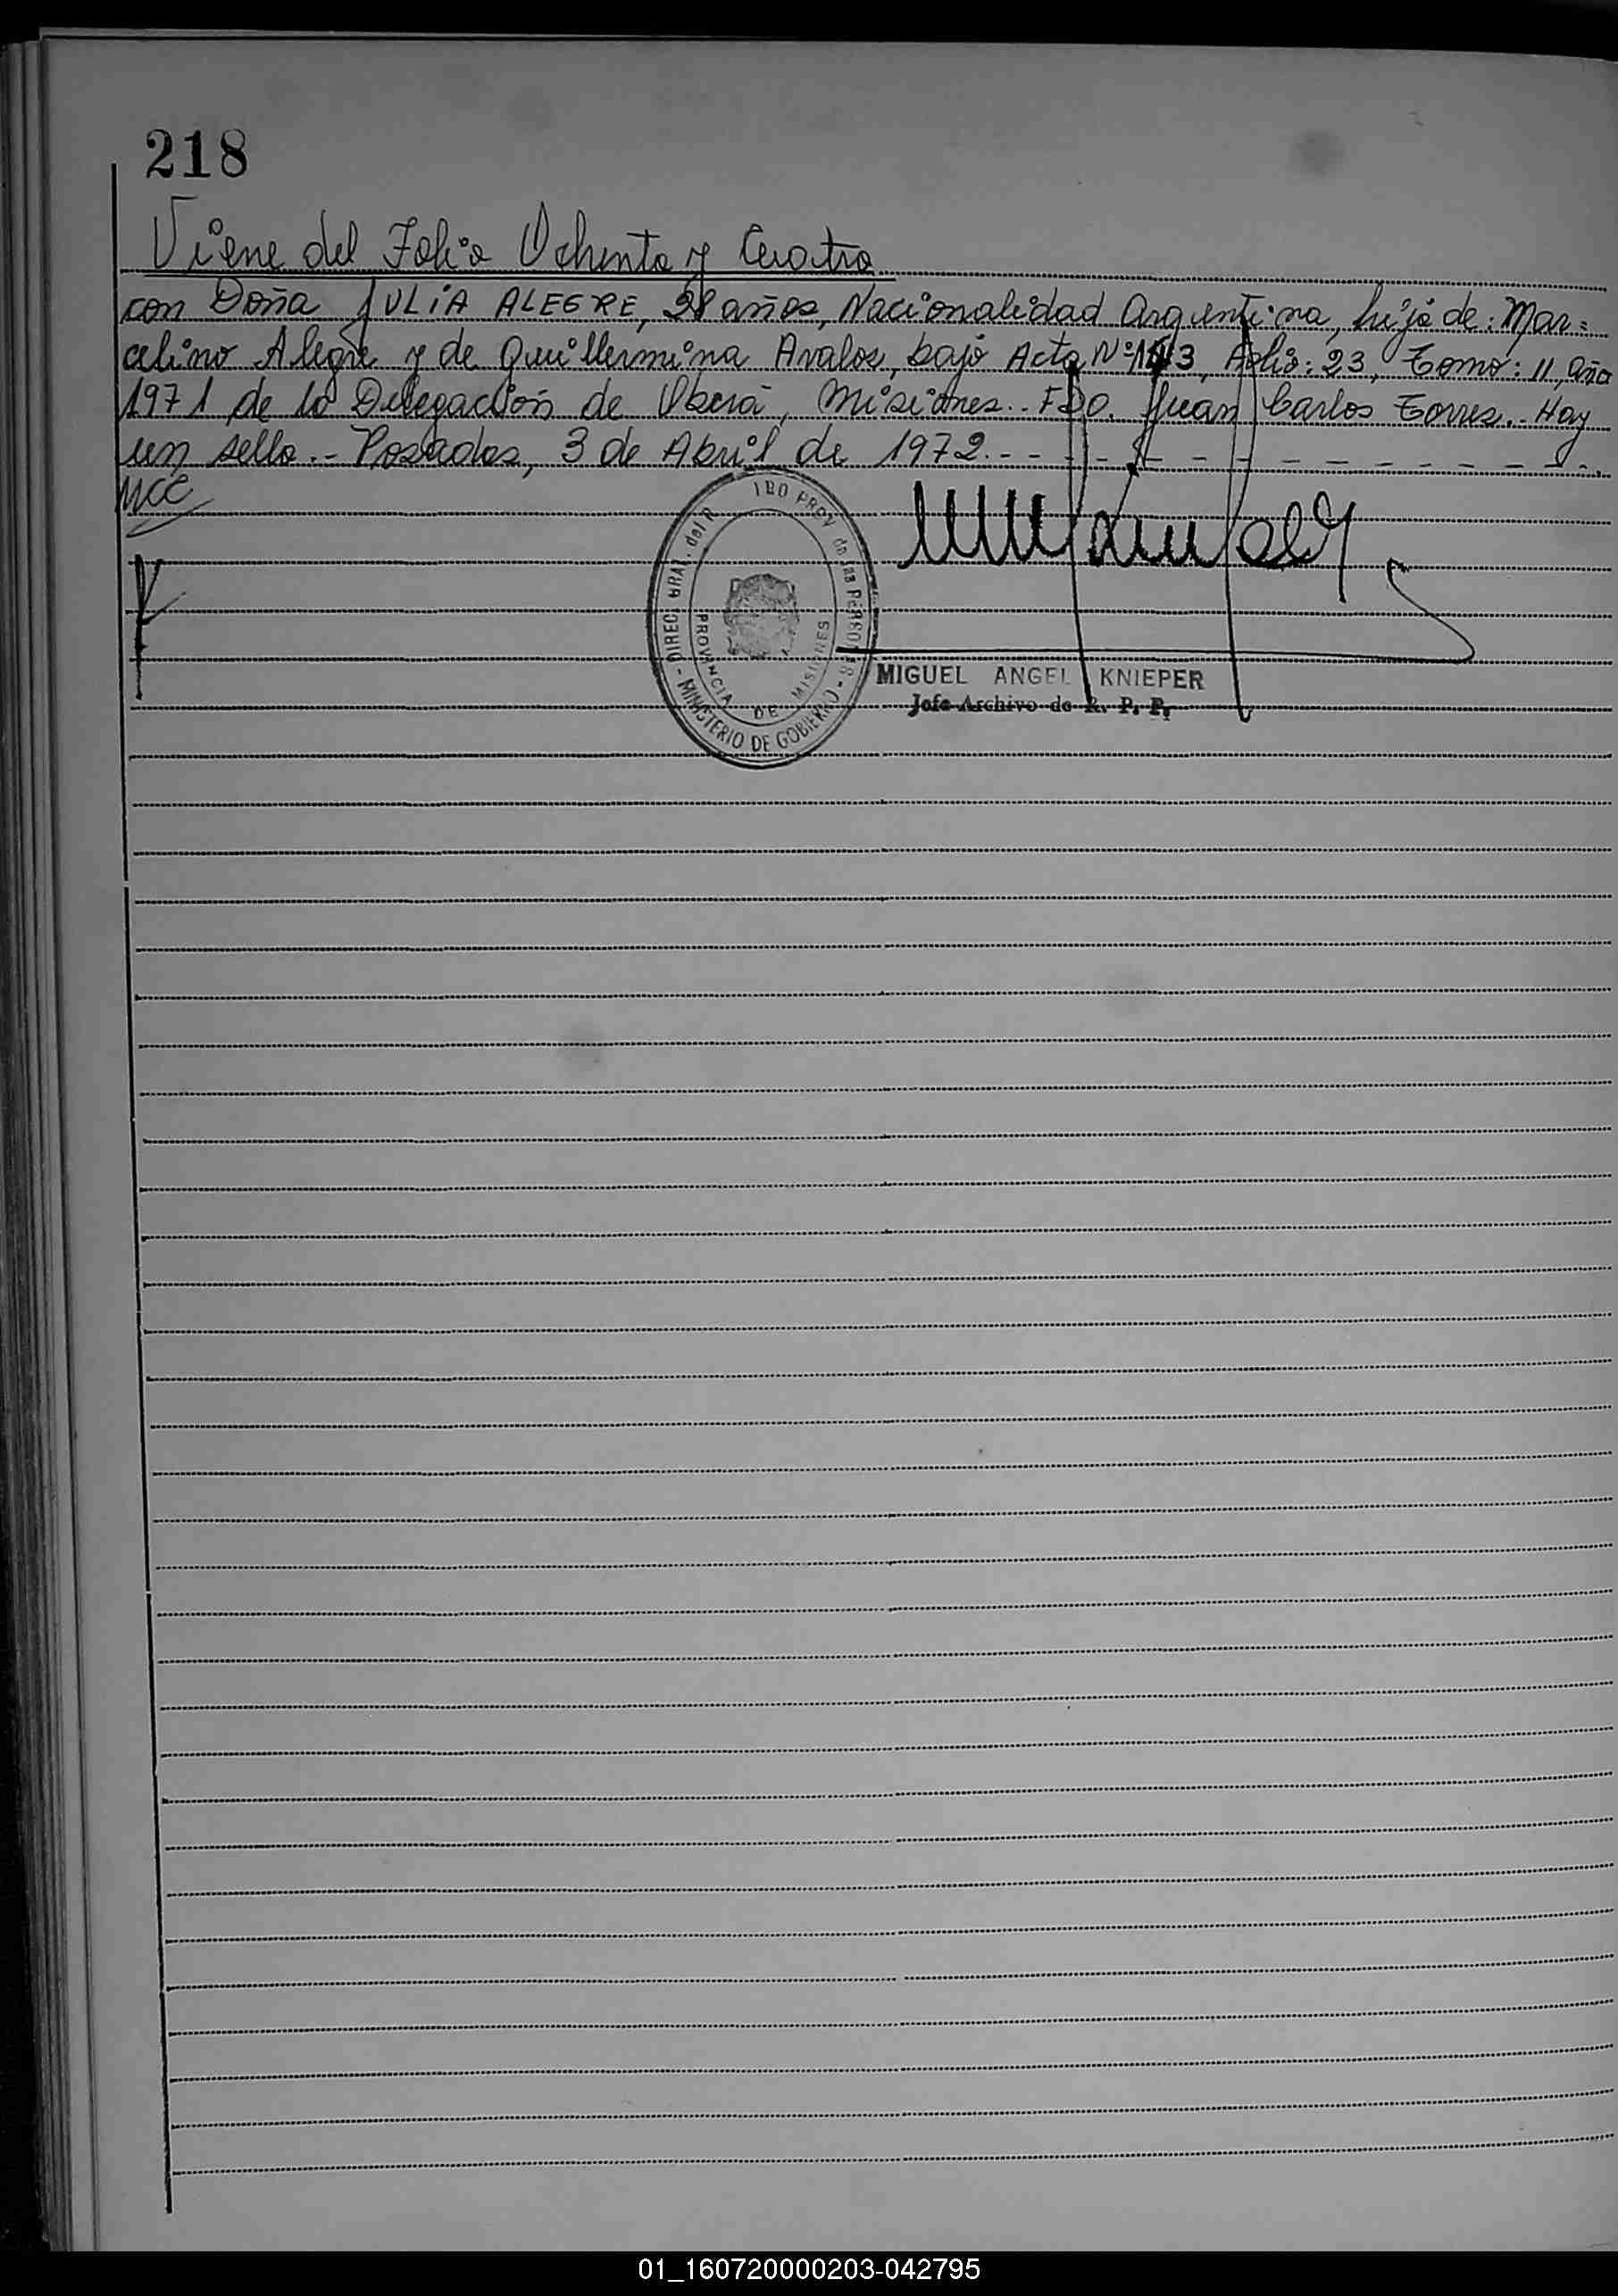 218
Viene del Folio Ochenta y Cuatro
con Doña JULIA ALEGRE, 28 años, Nacionalidad Argentina, hija de: Mar=
celino Alegre y de Guillermina Avalos, bajo Acta Nº 143, Folio: 23, Tomo: 11, año
1971 de la Delegación de Oberá, Misiones.- FDO. Juan Carlos Torres.- Hay
un sello.- Posadas, 3 de Abril de 1972.-
MCC
DIREC. GRAL. del R PROV. de las PERSONAS - MINISTERIO DE GOBIERNO -
PROVINCIA DE MISIONES
MIGUEL ANGEL KNIEPER
Jefe Archivo de R. P. P.
01_160720000203-042795